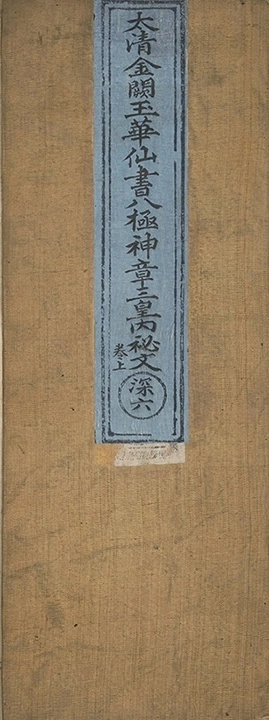 太清金闕玉華仙書八極神章三皇內祕文
卷上
深六